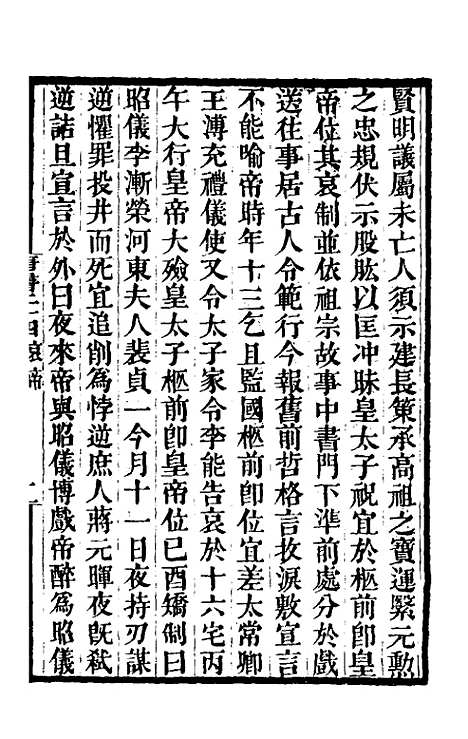 賢明議屬未亡人須示建長策承高祖之寶運繄元勳
之忠規伏示股肱以匡冲昧皇太子祝宜於柩前卽皇
帝位其哀制並依祖宗故事中書門下準前處分於戲
送往事居古人令範行今報舊前哲格言抆淚敷宣言
不能喻帝時年十三乞且監國柩前卽位宜差太常卿
王溥充禮儀使又令太子家令李能告哀於十六宅丙
午大行皇帝大殮皇太子柩前卽皇帝位已酉矯制曰
昭儀李漸榮河東夫人裴貞一今月十一日夜持刃謀
逆懼罪投井而死宜追削為悖逆庶人蔣元暉夜旣弒
逆詰旦宣言於外曰夜來帝與昭儀博戲帝醉為昭儀